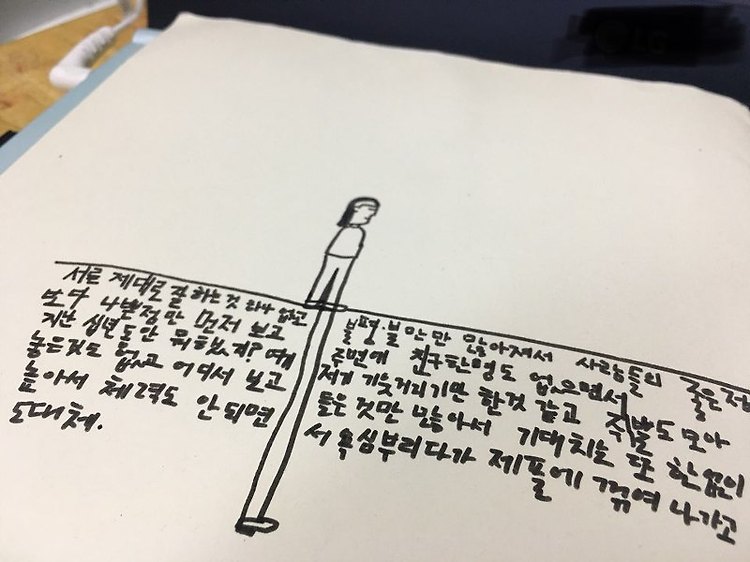 서른 제대로 잘 하는것 하나 없고 불평.불만만 많아져서 사람들의 좋은점
보다 나쁜점만 먼저 보고 주변에 친구한명도 없으면서
지난 십년동안 뭐했지? 여기 저기 기웃거리기만 한것 같고 쥐뿔도 모아
놓은것도 없고 어디서 보고 들은것만 많아서 기대치는 또 한없이
높아서 체력도 안되면 서 욕심부리다가 제풀에 꺾여 나가고
도대체.
LG